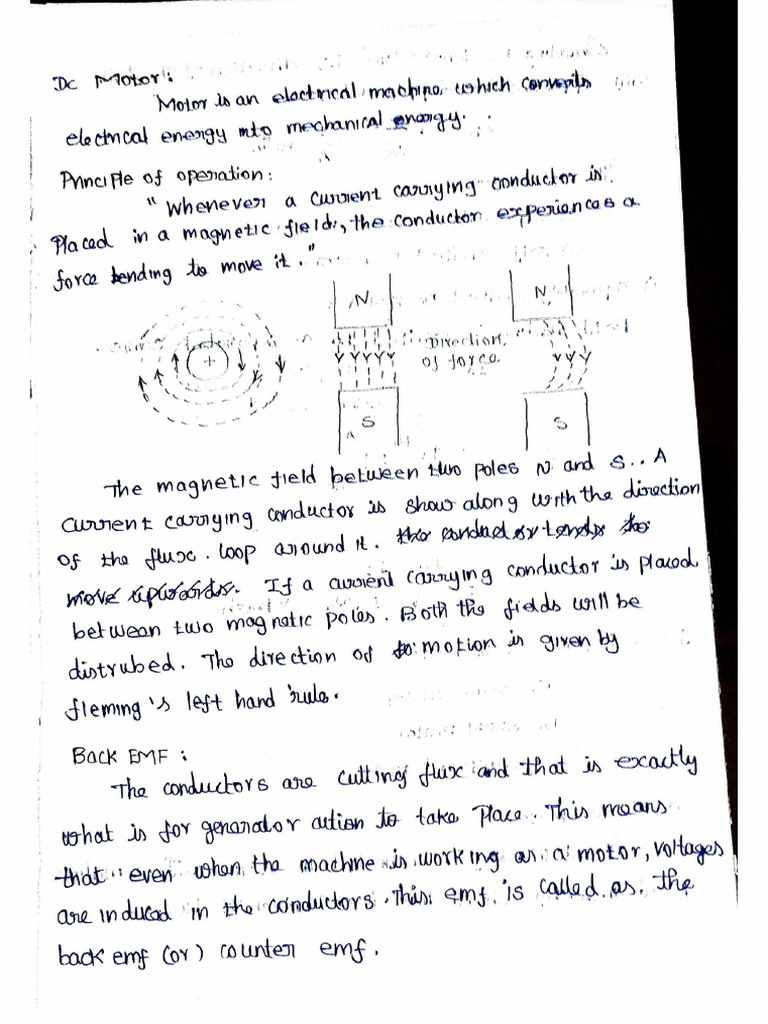 Dc Motor:
Motor is an electrical machine which converts
electrical energy into mechanical energy.
Principle of operation:
"Whenever a current carrying conductor is
placed in a magnetic field, the conductor experiences a
force tending to move it."
N
N
+
Direction
of force
S
S
The magnetic field between two poles N and S.. A
current carrying conductor is show along with the direction
of the flux loop around it. the conductor tends to
move upwards. If a current carrying conductor is placed
between two magnetic poles. Both the fields will be
distrubed. The direction of motion is given by
fleming's left hand rule.
Back EMF:
The conductors are cutting flux and that is exactly
what is for generator action to take place. This means
that even when the machine is working as a motor, voltages
are induced in the conductors. This emf is called as the
back emf (or) counter emf.